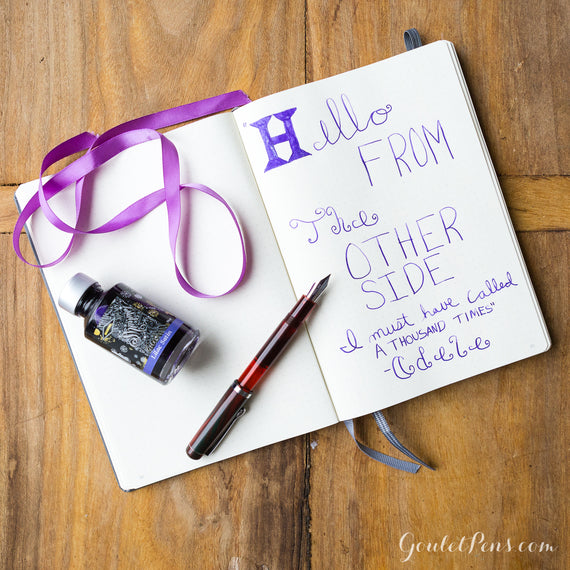 "Hello
FROM
The
OTHER
SIDE
I must have called
A THOUSAND TIMES"
-Adele
GouletPens.com